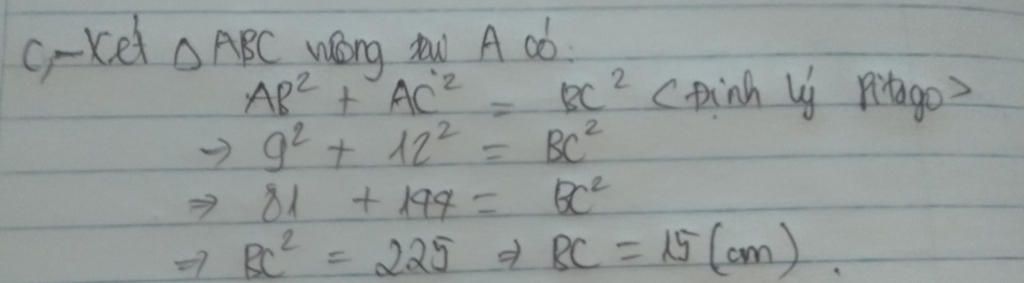 c,- Xét △ ABC vuông tại A có:
AB² + AC² = BC² <Định lý Pitago>
→ 9² + 12² = BC²
⇒ 81 + 144 = BC²
⇒ BC² = 225 ⇒ BC = 15 (cm).